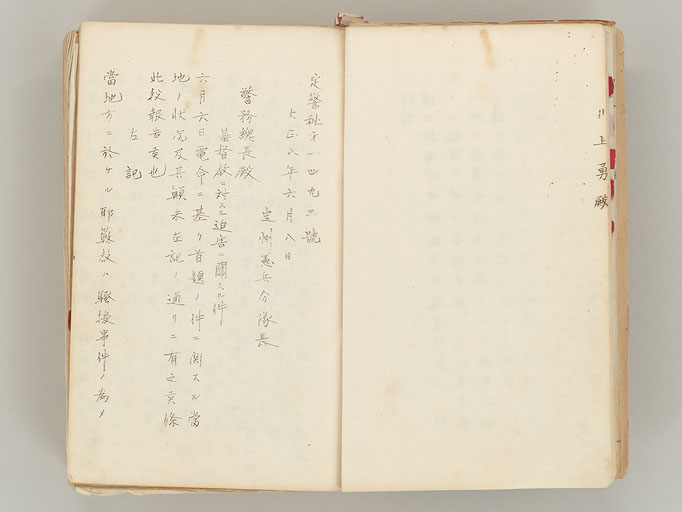 川上勇殿
定警秘第一四九三號
大正八年六月八日
定州憲兵分隊長
警務總長殿
基督敎ニ対スル迫害ニ關スル件
六月六日電命ニ基リ首題ノ件ニ関スル當
地ノ状况及其顛末左記ノ通リニ有之候條
此段報告候也
左記
當地方ニ於ケル耶蘇敎ハ騒擾事件ノ為メ